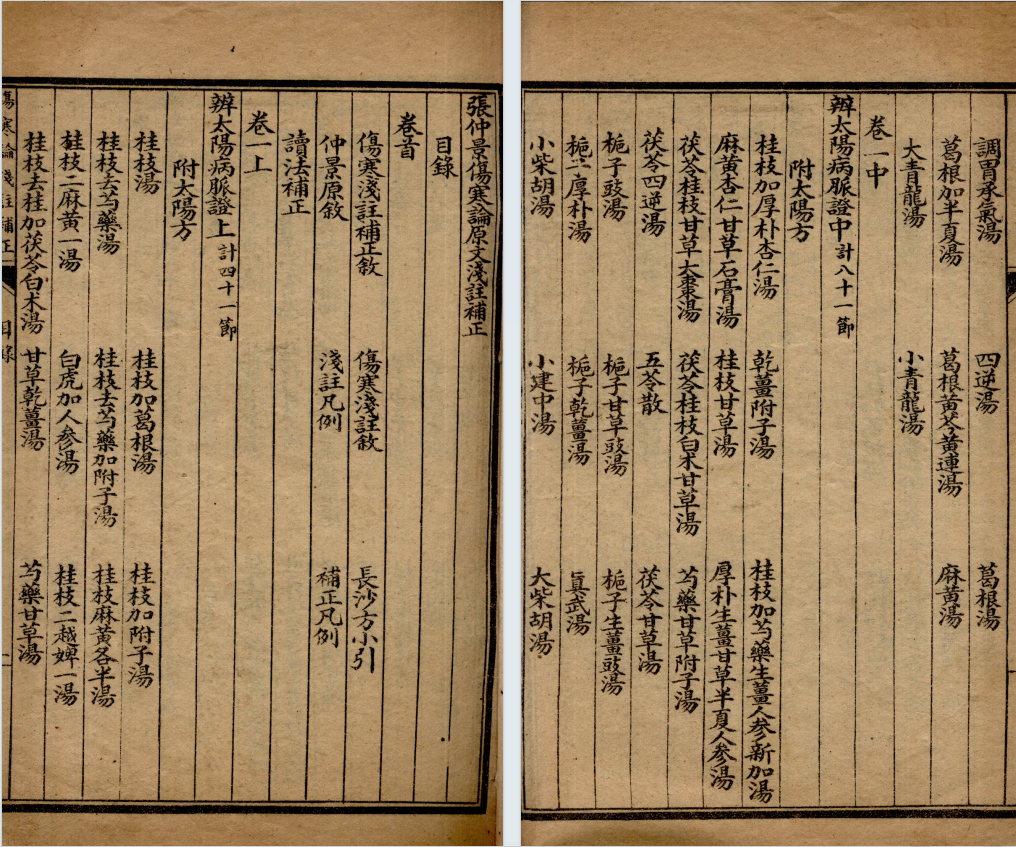 張仲景傷寒論原文淺註補正
目錄
卷首
傷寒淺註補正敘　傷寒淺註敘　長沙方小引
仲景原敘　淺註凡例　補正凡例
讀法補正
卷一上
辨太陽病脈證上計四十一節
附太陽方
桂枝湯　桂枝加葛根湯　桂枝加附子湯
桂枝去芍藥湯　桂枝去芍藥加附子湯　桂枝麻黃各半湯
桂枝二麻黃一湯　白虎加人參湯　桂枝二越婢一湯
桂枝去桂加茯苓白朮湯　甘草乾薑湯　芍藥甘草湯
傷寒論淺註補正　目錄　一
調胃承氣湯　四逆湯　葛根湯
葛根加半夏湯　葛根黃芩黃連湯　麻黃湯
大青龍湯　小青龍湯
卷一中
辨太陽病脈證中計八十一節
附太陽方
桂枝加厚朴杏仁湯　乾薑附子湯　桂枝加芍藥生薑人參新加湯
麻黃杏仁甘草石膏湯　桂枝甘草湯　厚朴生薑甘草半夏人參湯
茯苓桂枝甘草大棗湯　茯苓桂枝白朮甘草湯　芍藥甘草附子湯
茯苓四逆湯　五苓散　茯苓甘草湯
梔子豉湯　梔子甘草豉湯　梔子生薑豉湯
梔子厚朴湯　梔子乾薑湯　眞武湯
小柴胡湯　小建中湯　大柴胡湯